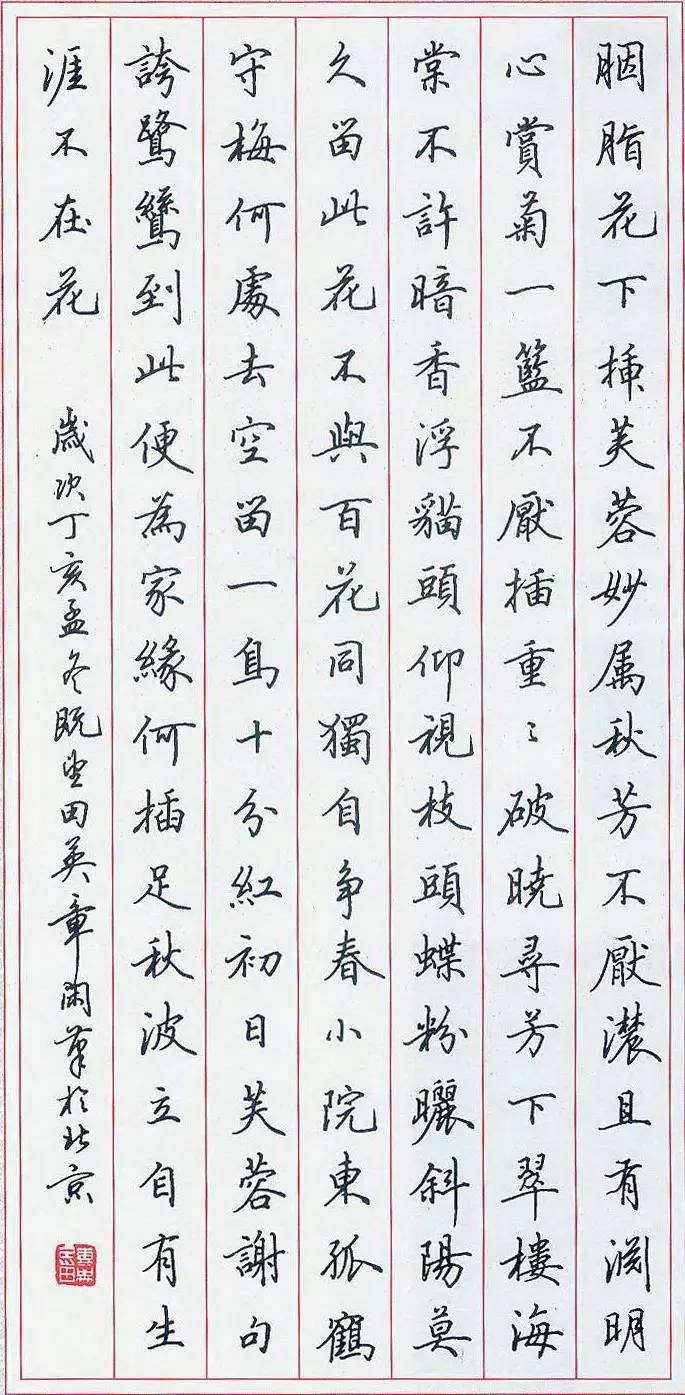 胭脂花下挿芙蓉妙属秋芳不厭濃且有渊明
心賞菊一籃不厭插重〻破曉尋芳下翠樓海
棠不許暗香浮貓頭仰視枝頭蝶粉曬斜陽莫
久留此花不與百花同獨自争春小院東孤鶴
守梅何處去空留一鳥十分紅初日芙蓉謝句
誇鷺鷥到此便為家緣何插足秋波立自有生
涯不在花
歲次丁亥孟冬既望田英章閑筆於北京